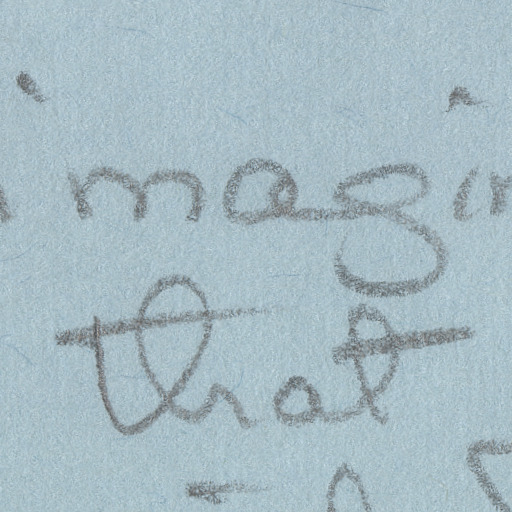 imagin
that